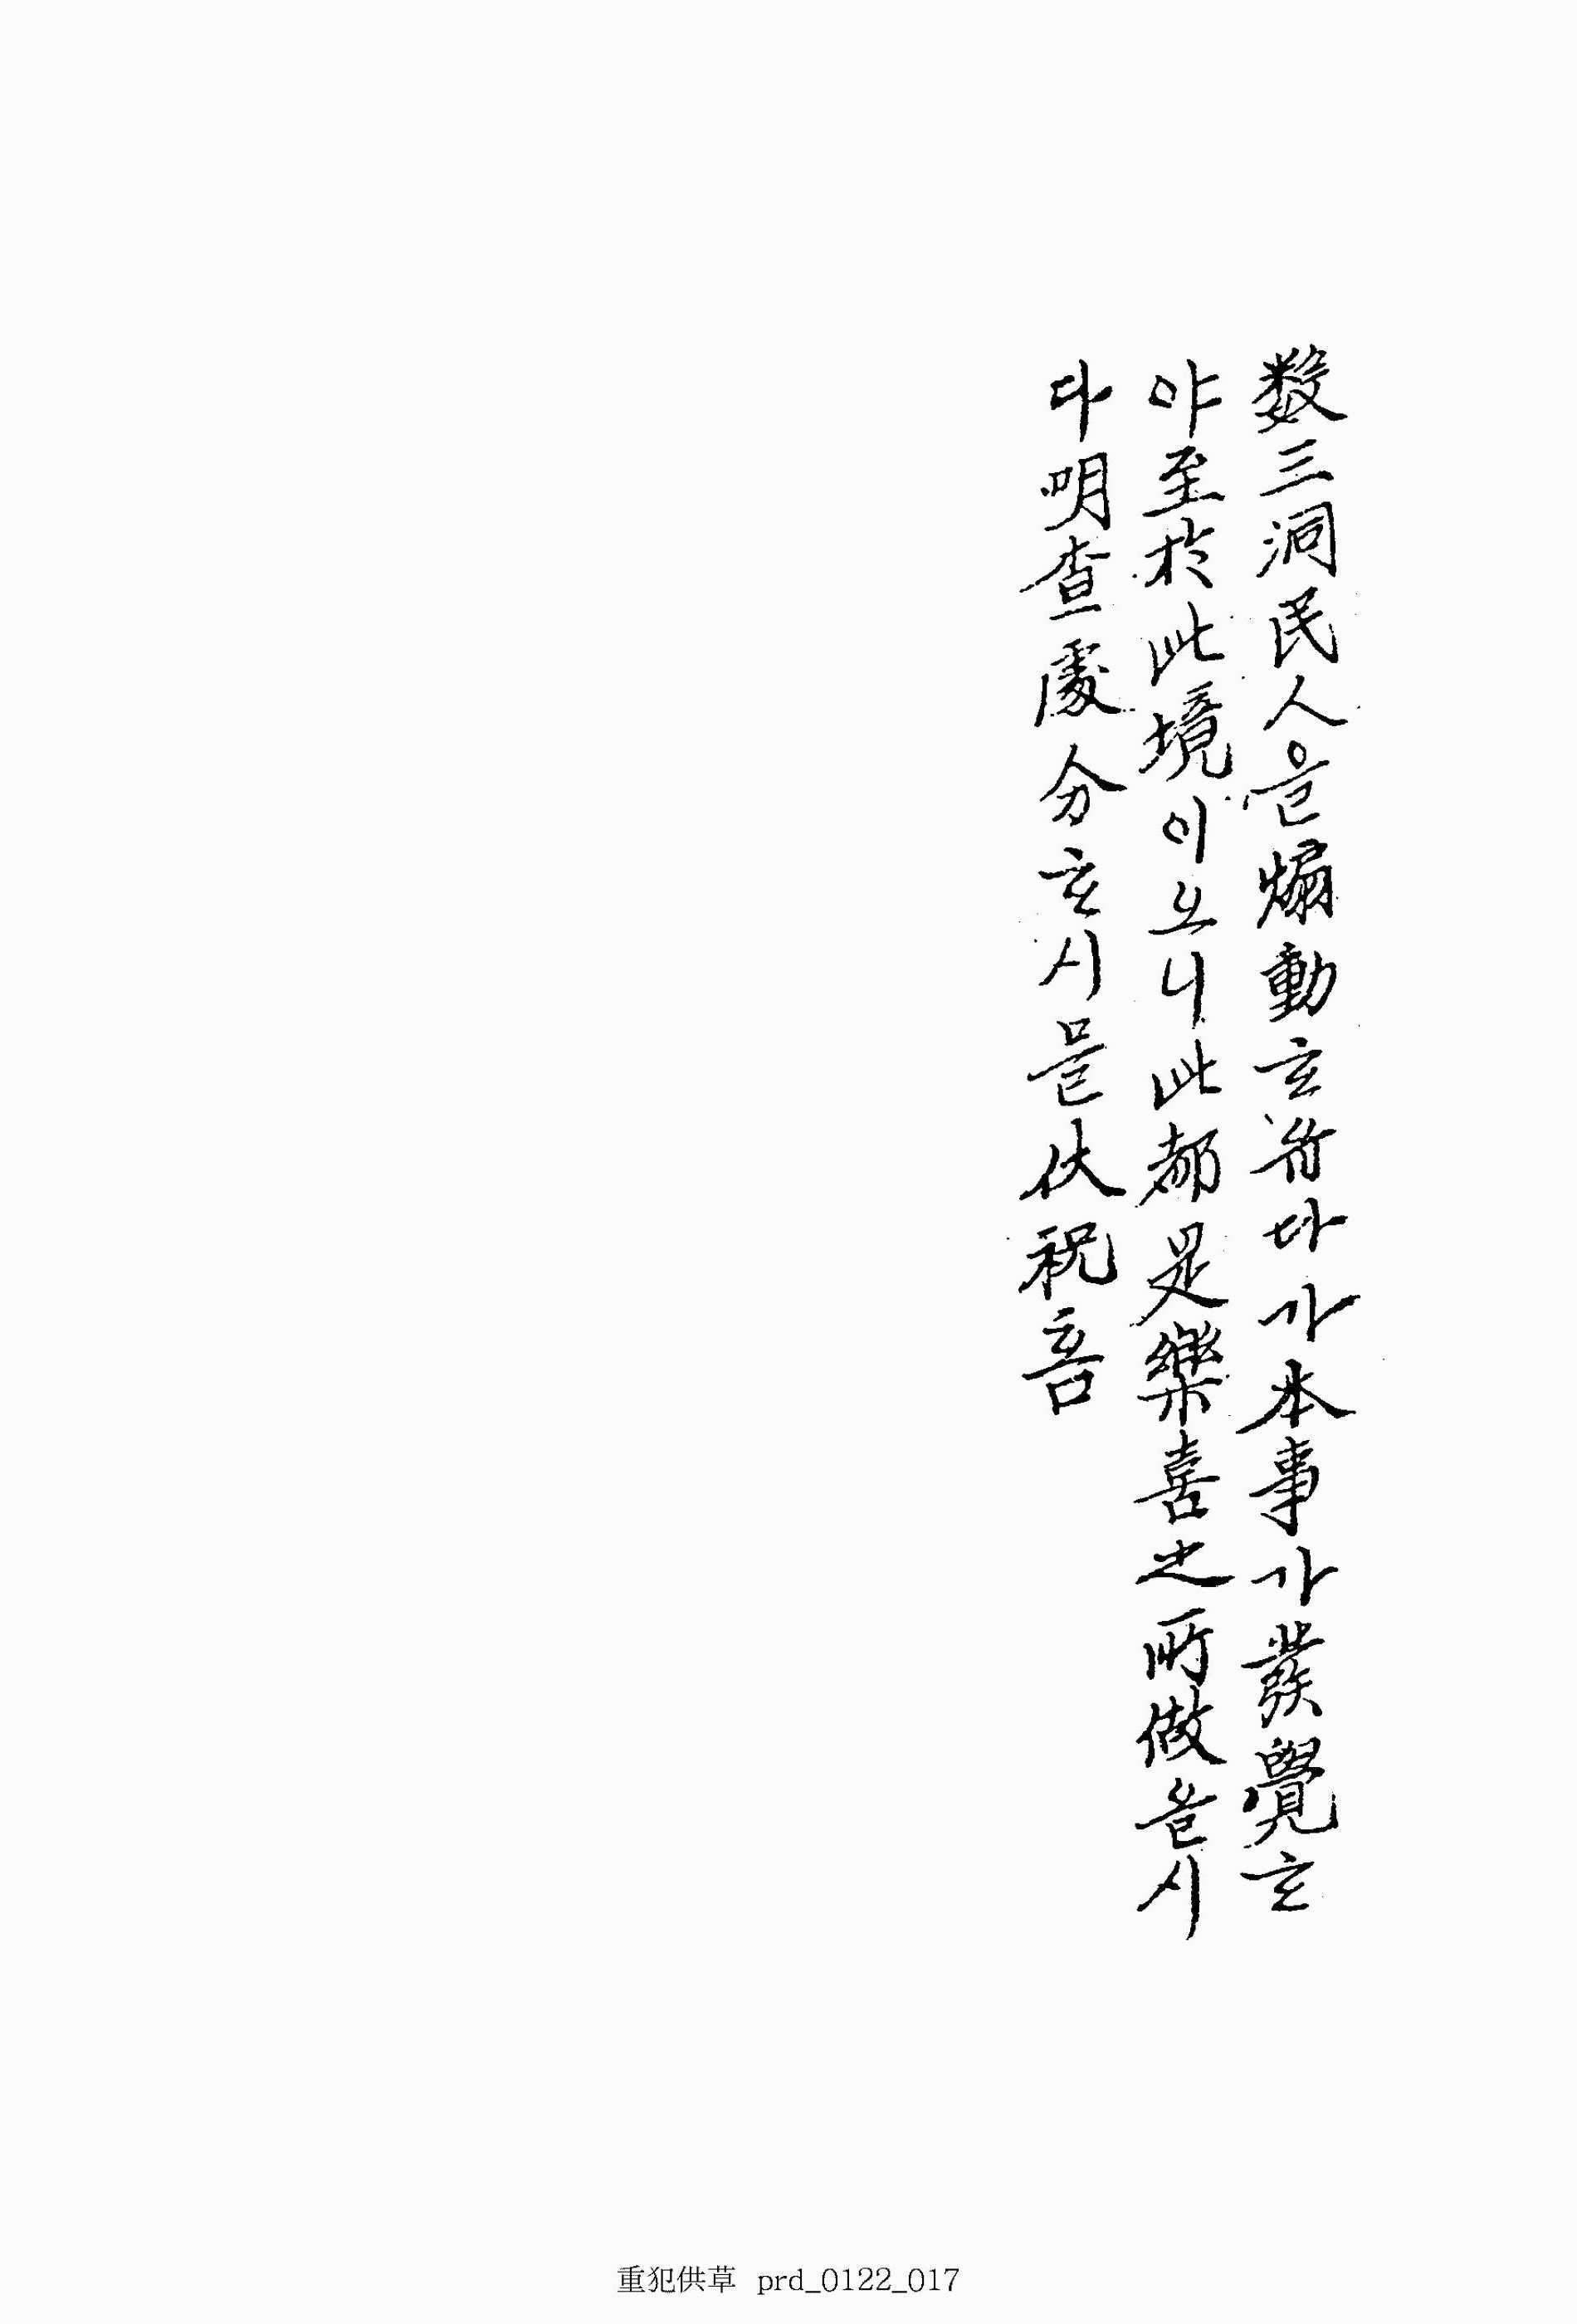 数三洞民人을煽動ᄒᆞ다가本事가發覺ᄒᆞ
야至於此境이오니此都是樂喜之所做올시
다明査處分ᄒᆞ시믈伏祝ᄒᆞᆷ
重犯供草 prd_0122_017